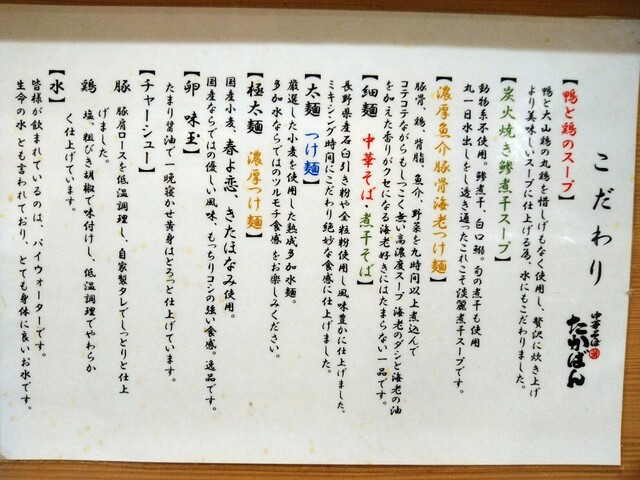 こだわり
中華そば
たかばん
【鴨と鶏のスープ】
鴨と大山鶏の丸鶏を惜しげもなく使用し、贅沢に炊き上げ
より美味しいスープに仕上げる為、水にもこだわりました。
【炭火焼き鯵煮干スープ】
動物系不使用。鯵煮干、白口鰯。旬の煮干も使用
丸一日水出しをし透き通ったこれこそ淡麗煮干スープです。
【濃厚魚介豚骨海老つけ麺】
豚骨、鶏、背脂、魚介、野菜を九時間以上煮込んで
コテコテながらもしつこく無い高濃度スープ 海老のダシと海老の油
を加えた香りがクセになる海老好きにはたまらない一品です。
【細麺 中華そば・煮干そば】
長野県産石臼引き粉や全粒粉使用し風味豊かに仕上げました。
ミキシング時間にこだわり絶妙な食感に仕上げました。
【太麺 つけ麺】
厳選した小麦を使用した熟成多加水麺。
多加水ならではのツルモチ食感をお楽しみください。
【極太麺 濃厚つけ麺】
国産小麦、春よ恋、きたほなみ使用。
国産ならではの優しい風味、もっちりコシの強い食感。逸品です。
【卵 味玉】
たまり醤油で一晩寝かせ黄身はとろっと仕上げています。
【チャーシュー】
豚 豚肩ロースを低温調理し、自家製タレでしっとりと仕上
げました。
鶏 塩、粗びき胡椒で味付けし、低温調理でやわらか
く仕上げています。
【水】
皆様が飲まれているのは、パイウォーターです。
生命の水 とも言われており、とても身体に良いお水です。